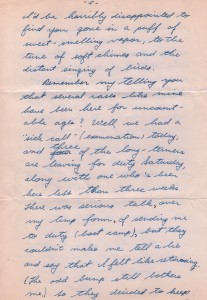 -2-
I'd be horribly disappointed to
find you gone in a puff of
sweet-smelling vapor, to the
tune of soft chimes and the
distant singing of birds.
Remember my telling you
that several cases like mine
have been here for uncount-
able ages? Well, we had a
"sick call" (examination) today,
and three of the long-termers
are leaving for duty Saturday,
along with one who's been
here less than three weeks.
There was serious talk, over
my temp form, of sending me
to duty (boat camp), but they
couldn't make me tell a lie
and say that I felt like returning
(the old bump still bothers
me) so they decided to keep